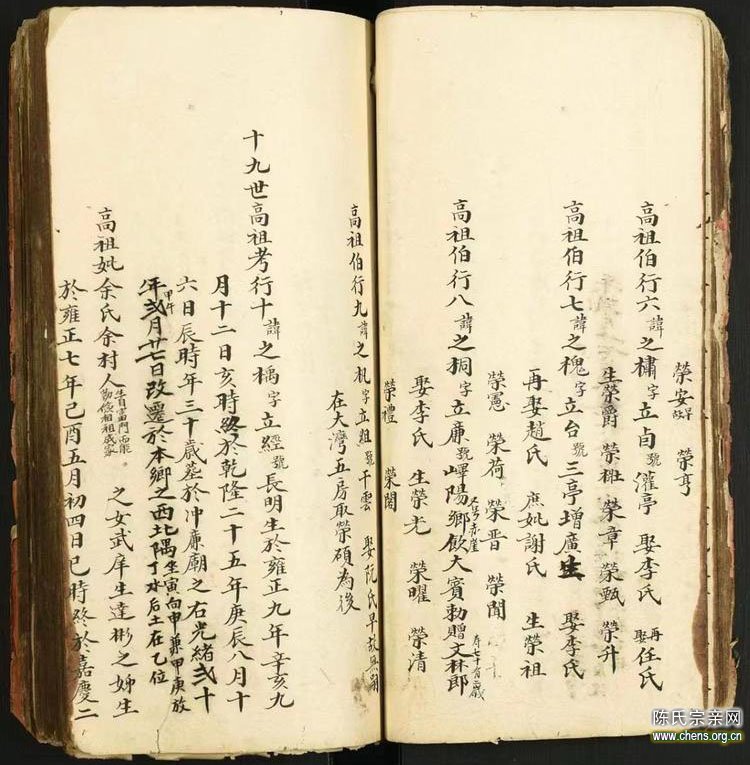 榮安 榮亨
高祖伯行六諱之橚字立卣號灌亭 娶李氏 再娶任氏
生榮爵 榮班 榮章 榮甄 榮升
高祖伯行七諱之槐字立台號三亭增廣生 娶李氏
再娶趙氏 庶妣謝氏 生榮祖
榮憲 榮荷 榮晋 榮聞
高祖伯行八諱之桐字立廉號嶧陽鄉飲大賓勅贈文林郎
娶李氏 生榮光 榮曜 榮清
榮禮 榮閣
高祖伯行九諱之札字立組號千雲 娶阮氏早故無嗣
在大灣五房取榮碩為後
十九世高祖考行十諱之橋字立經號長明生於雍正九年辛亥九
月十二日亥時終於乾隆二十五年庚辰八月十
六日辰時年三十歲葬於冲廉廟之右光緒弍十
年甲午弍月廿七日改遷於本鄉之西北隅坐寅向申兼甲庚放丁水后土在乙位
高祖妣余氏余村人生自富門而能勤儉相祖成家之女武庠生達彬之姊生
於雍正七年己酉五月初四日巳時終於嘉慶二
陈氏宗亲网
www.chens.org.cn